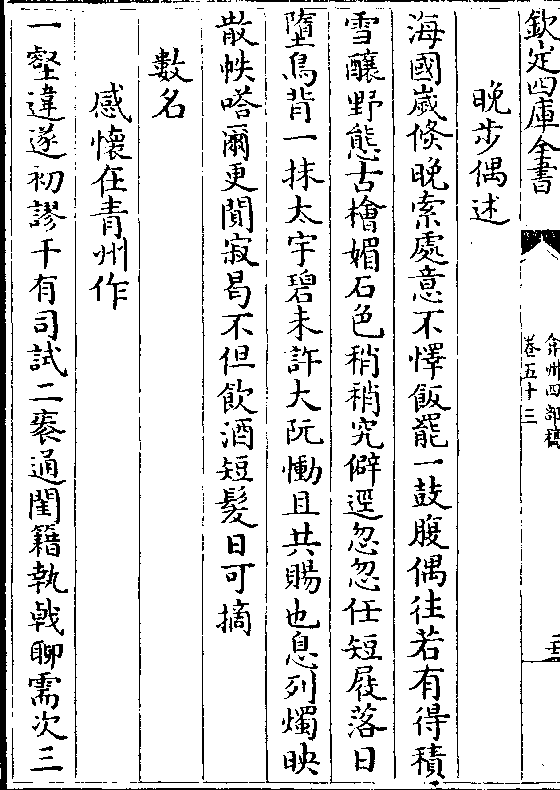 欽定四庫全書
弇州四部稿
卷五十三
晚步偶述
海國嵗倐晚索處意不懌飯罷一鼓腹偶往若有得積
雪釀野態古檜媚石色稍稍究僻逕忽忽任短屐落日
墮鳥背一抹太宇碧未許大阮慟且共賜也息列燭映
散帙嗒爾更閴寂曷不但飲酒短髮日可摘
數名
感懷在青州作
一壑違遂初謬干有司試二袠通閨籍執㦸聊需次三